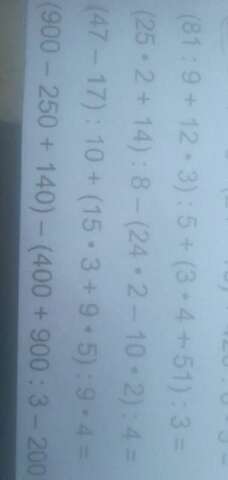 (81 : 9 + 12 • 3) : 5 + (3 • 4 + 51) : 3 =
(25 • 2 + 14) : 8 – (24 • 2 – 10 • 2) : 4 =
(47 – 17) : 10 + (15 • 3 + 9 • 5) : 9 • 4 =
(900 – 250 + 140) – (400 + 900 : 3 – 200